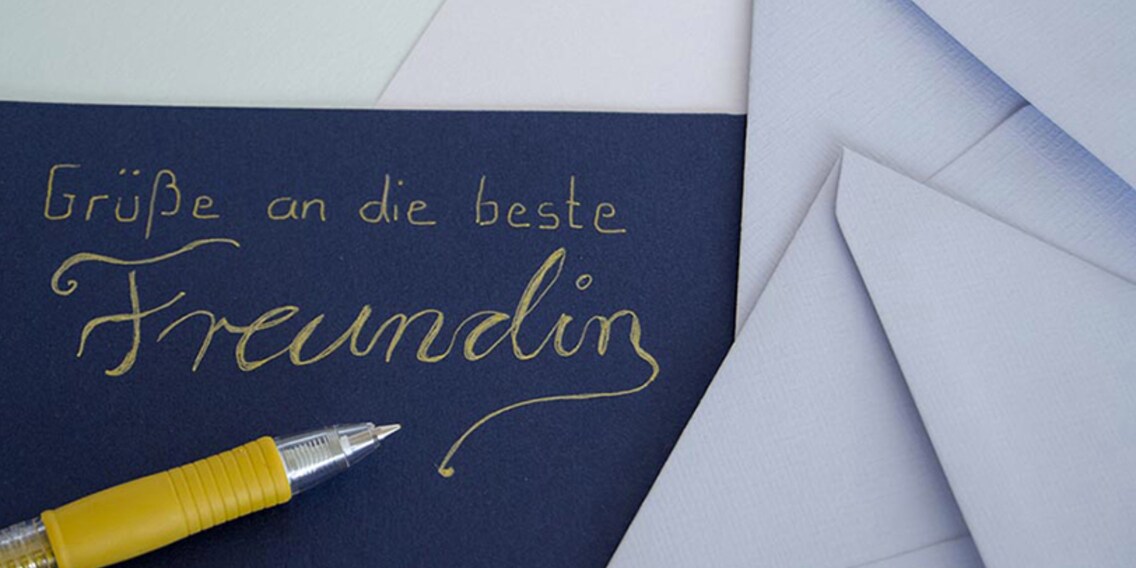 Grüße an die beste
Freundin